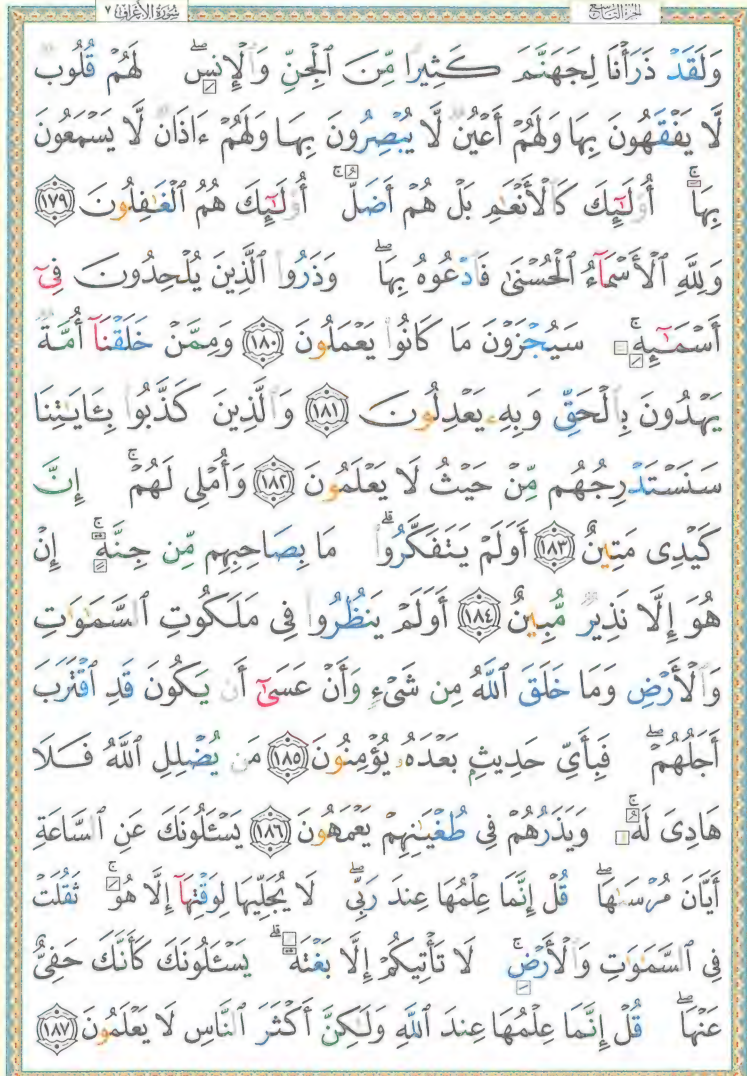 سُورَةُ الأَعۡرَافِ ٧ الجُزْءُ التَّاسِعُ
وَلَقَدۡ ذَرَأۡنَا لِجَهَنَّمَ كَثِيرًا مِّنَ ٱلۡجِنِّ وَٱلۡإِنسِۖ لَهُمۡ قُلُوبٌ
لَّا يَفۡقَهُونَ بِهَا وَلَهُمۡ أَعۡيُنٌ لَّا يُبۡصِرُونَ بِهَا وَلَهُمۡ ءَاذَانٌ لَّا يَسۡمَعُونَ
بِهَآۚ أُوْلَٰٓئِكَ كَٱلۡأَنۡعَٰمِ بَلۡ هُمۡ أَضَلُّۚ أُوْلَٰٓئِكَ هُمُ ٱلۡغَٰفِلُونَ ١٧٩
وَلِلَّهِ ٱلۡأَسۡمَآءُ ٱلۡحُسۡنَىٰ فَٱدۡعُوهُ بِهَاۖ وَذَرُواْ ٱلَّذِينَ يُلۡحِدُونَ فِيٓ
أَسۡمَٰٓئِهِۦۚ سَيُجۡزَوۡنَ مَا كَانُواْ يَعۡمَلُونَ ١٨٠ وَمِمَّنۡ خَلَقۡنَآ أُمَّةٌ
يَهۡدُونَ بِٱلۡحَقِّ وَبِهِۦ يَعۡدِلُونَ ١٨١ وَٱلَّذِينَ كَذَّبُواْ بِـَٔايَٰتِنَا
سَنَسۡتَدۡرِجُهُم مِّنۡ حَيۡثُ لَا يَعۡلَمُونَ ١٨٢ وَأُمۡلِي لَهُمۡۚ إِنَّ
كَيۡدِي مَتِينٌ ١٨٣ أَوَلَمۡ يَتَفَكَّرُواْۗ مَا بِصَاحِبِهِم مِّن جِنَّةٍۚ إِنۡ
هُوَ إِلَّا نَذِيرٌ مُّبِينٌ ١٨٤ أَوَلَمۡ يَنظُرُواْ فِي مَلَكُوتِ ٱلسَّمَٰوَٰتِ
وَٱلۡأَرۡضِ وَمَا خَلَقَ ٱللَّهُ مِن شَيۡءٍ وَأَنۡ عَسَىٰٓ أَن يَكُونَ قَدِ ٱقۡتَرَبَ
أَجَلُهُمۡۖ فَبِأَيِّ حَدِيثِۭ بَعۡدَهُۥ يُؤۡمِنُونَ ١٨٥ مَن يُضۡلِلِ ٱللَّهُ فَلَا
هَادِيَ لَهُۥۚ وَيَذَرُهُمۡ فِي طُغۡيَٰنِهِمۡ يَعۡمَهُونَ ١٨٦ يَسۡـَٔلُونَكَ عَنِ ٱلسَّاعَةِ
أَيَّانَ مُرۡسَىٰهَاۖ قُلۡ إِنَّمَا عِلۡمُهَا عِندَ رَبِّيۖ لَا يُجَلِّيهَا لِوَقۡتِهَآ إِلَّا هُوَۚ ثَقُلَتۡ
فِي ٱلسَّمَٰوَٰتِ وَٱلۡأَرۡضِۚ لَا تَأۡتِيكُمۡ إِلَّا بَغۡتَةًۗ يَسۡـَٔلُونَكَ كَأَنَّكَ حَفِيٌّ
عَنۡهَاۖ قُلۡ إِنَّمَا عِلۡمُهَا عِندَ ٱللَّهِ وَلَٰكِنَّ أَكۡثَرَ ٱلنَّاسِ لَا يَعۡلَمُونَ ١٨٧